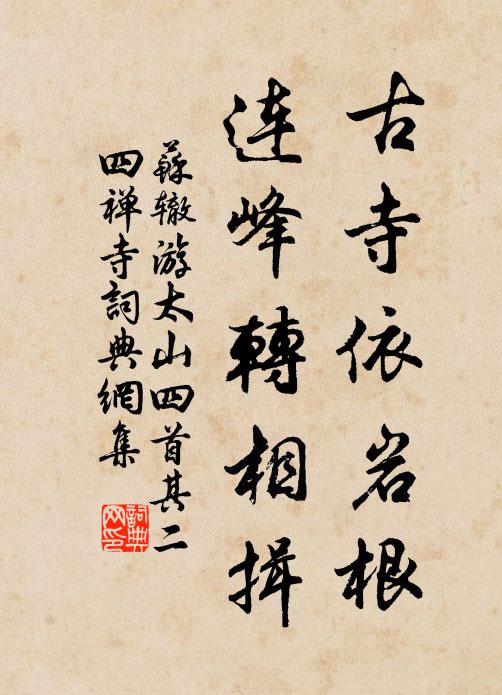 古寺依岩根
連峰轉相揖
蘇轍游太山四首其二
四禅寺詞典網集
詞典
网印